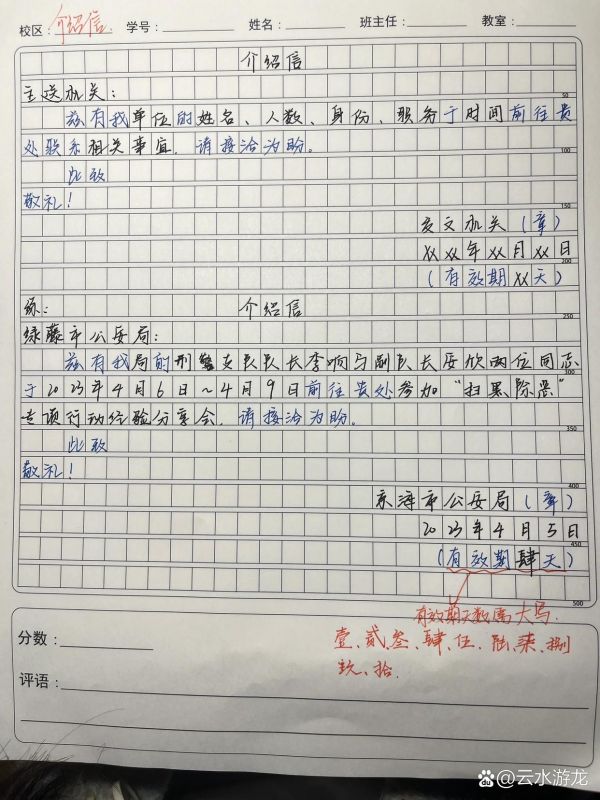 校区：介绍信 学号： 姓名： 班主任： 教室：
介绍信
主送机关：
兹有我单位的姓名、人数、身份、职务于时间前往贵
处联系相关事宜，请接洽为盼。
此致
敬礼！
发文机关（章）
XX XX年XX月XX日
（有效期XX天）
练：介绍信
绿藤市公安局：
兹有我局的刑警支队队长李响与副队长安欣两位同志
于2023年4月6日～4月9日前往贵处参加“扫黑除恶”
专项行动经验分享会，请接洽为盼。
此致
敬礼！
京海市公安局（章）
2023年4月5日
（有效期肆天）
50
100
150
200
250
300
350
400
450
500
有效期天数需大写
壹、贰、叁、肆、伍、陆、柒、捌
玖、拾
分数：
评语：
云水游龙